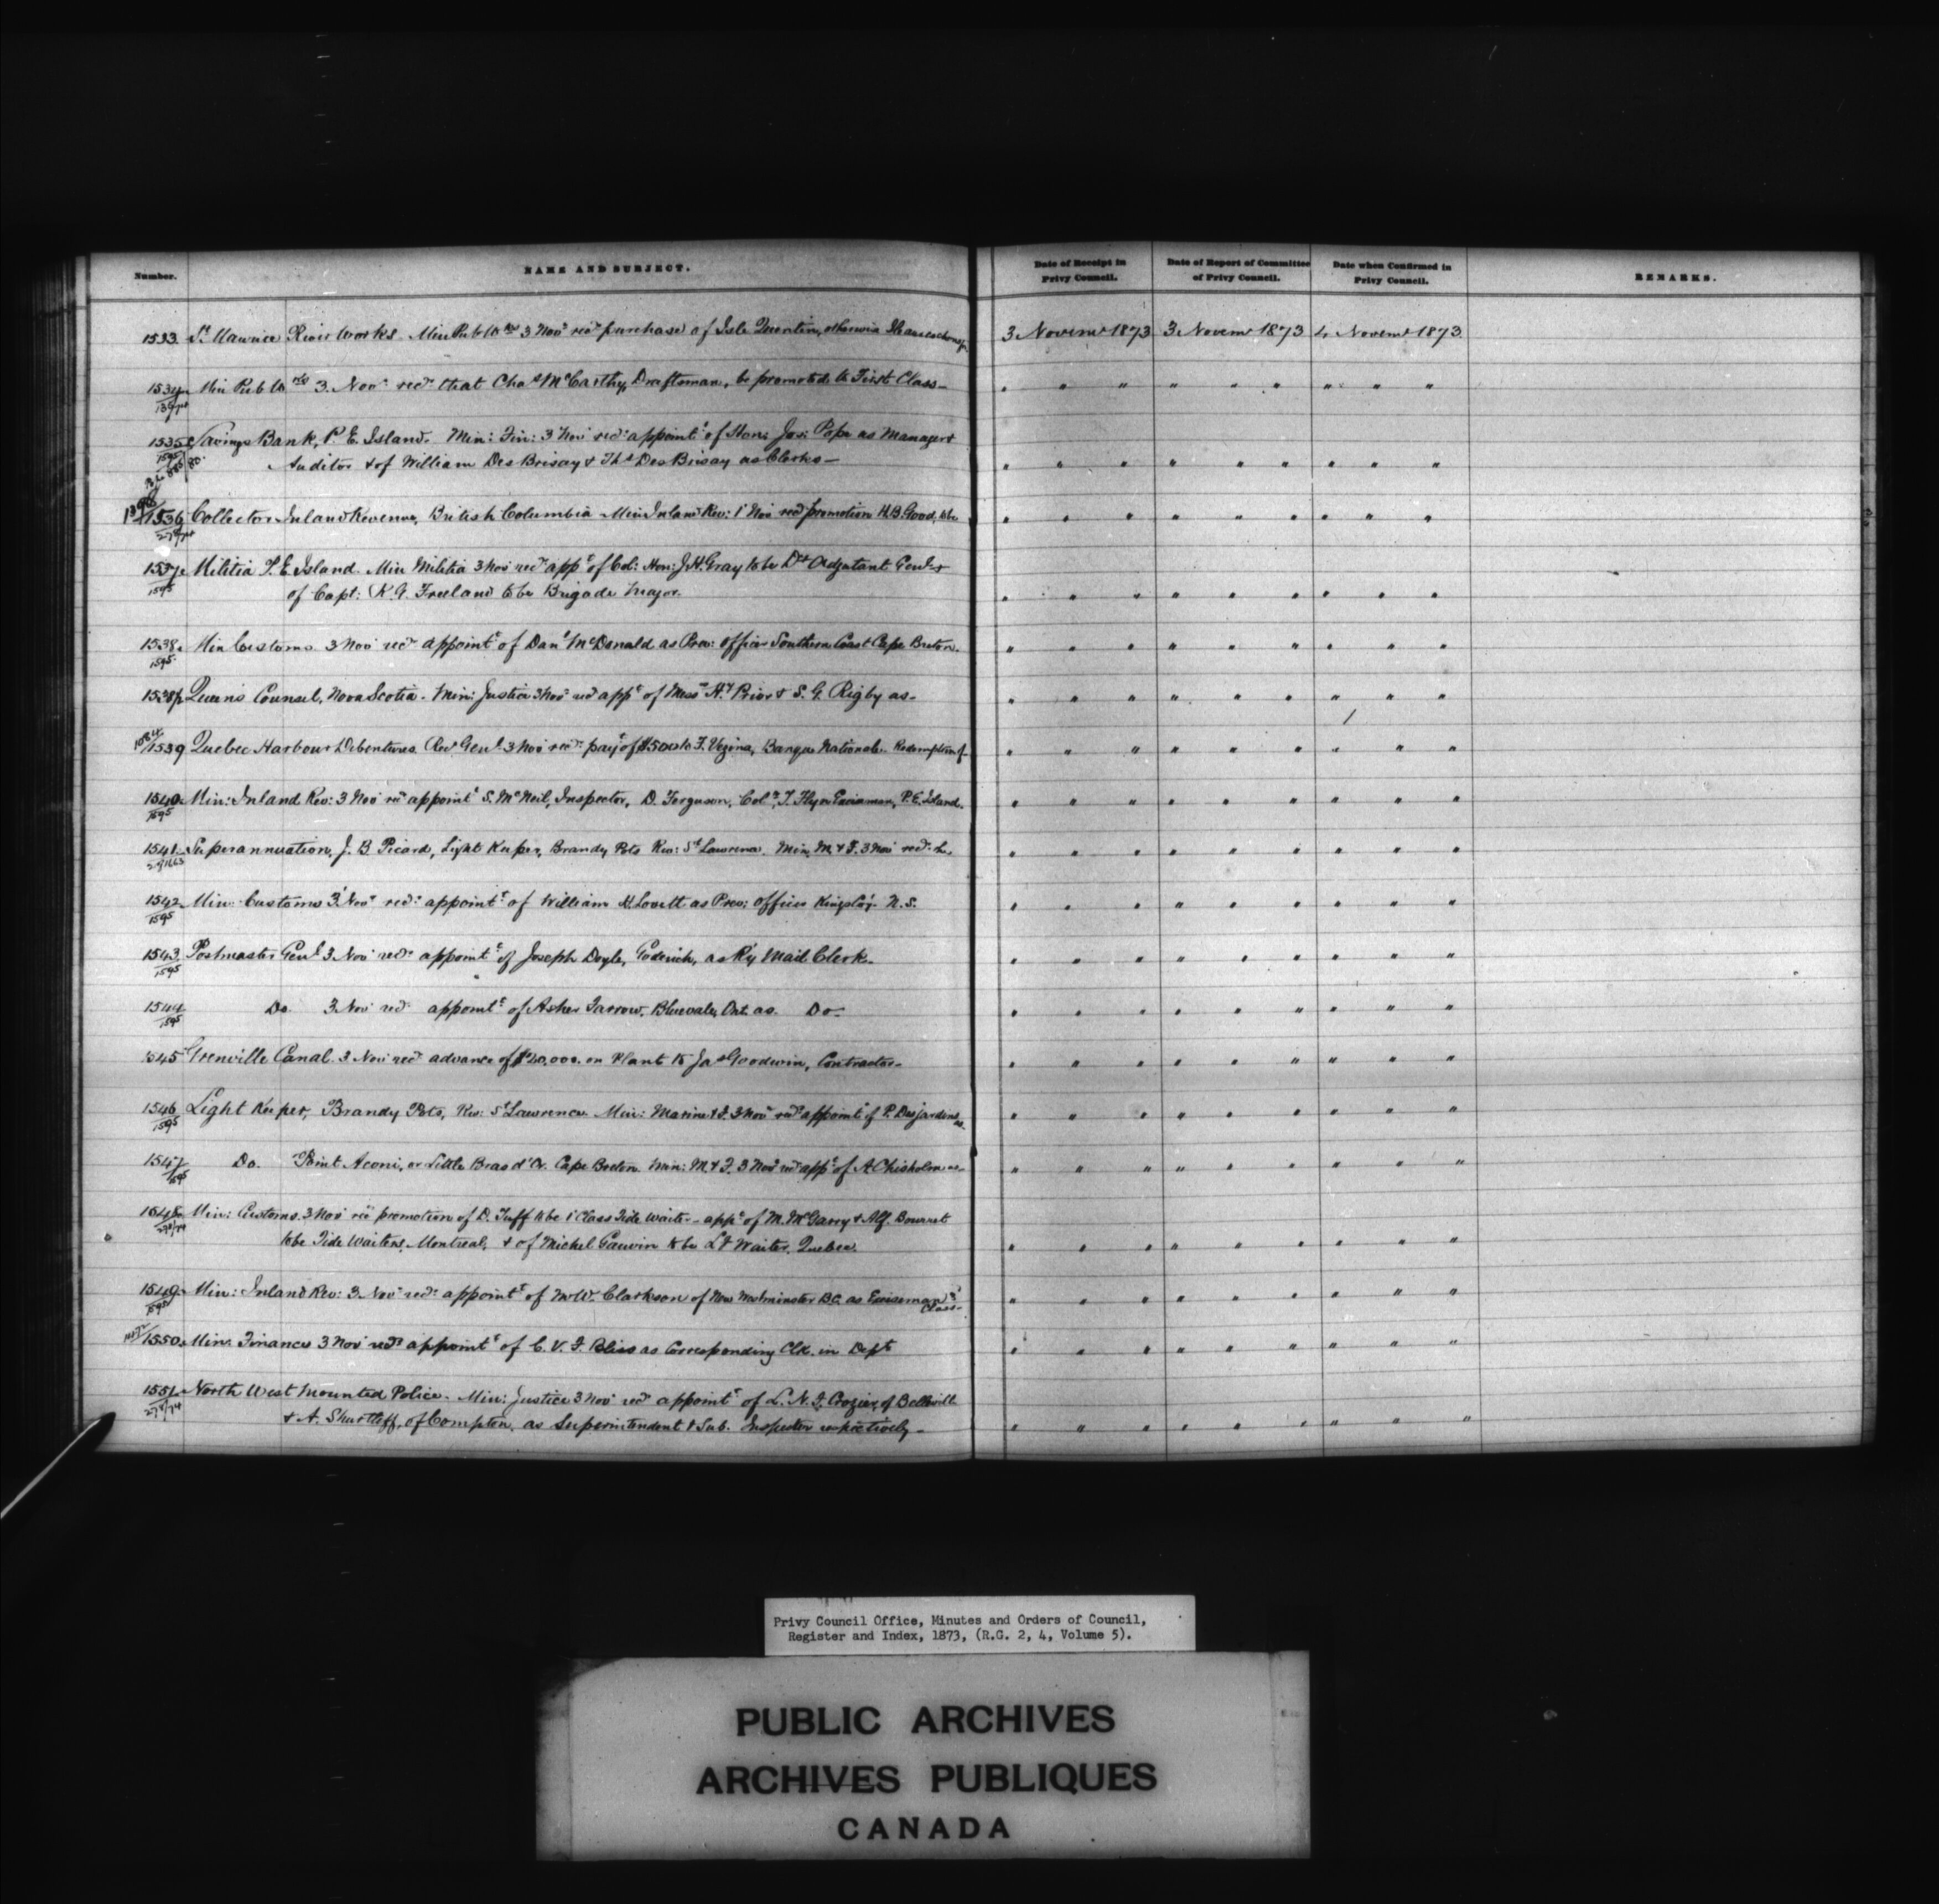 Number. NAME AND SUBJECT. Date of Receipt in Privy Council. Date of Report of Committee of Privy Council. Date when Confirmed in Privy Council. REMARKS.
1533 St Maurice River Works. Min Pub Wks 3 Novr recd purchase of Isle Quentin, otherwise 3 Novemr 1873 3 Novemr 1873 4 Novemr 1873
1534 Min Pub Wrks 3 Novr recd that Chas McCarthy, Draftsman, be promoted to First Class - " " " " " " " " "
1535 Savings Bank, P. E. Island. Min: Fin: 3 Nov recd appointt of Hon: Jos: Pope as Manager &
1595
Auditor & of William Des Brisay & Ths Des Brisay as Clerks - " " " " " " " " "
1536 Collector Inland Revenue, British Columbia Min Inland Rev: 1 Nov recd promotion H. B. Good, to be " " " " " " " " "
1537 Militia P. E. Island. Min Militia 3 Nov recd appt of Col: Hon: J. H. Gray to be Dy Adjutant Genl &
1595 of Capt: K. G. Freeland to be Brigade Major. " " " " " " " " "
1538 Min Customs 3 Nov recd appointt of Danl McDonald as Prev: Officer Southern Coast Cape Breton. " " " " " " " " "
1595
1538½ Queen's Counsel, Nova Scotia - Min: Justice 3 Nov recd appt of Messrs Hy Prior & S. G. Rigby as - " " " " " " " " "
1539 Quebec Harbour Debentures. Recr Genl 3 Nov recd payt of $500 to F. Vezina, Banque Nationale. Redemption of - " " " " " " " " "
1540 Min: Inland Rev: 3 Nov recd appointt S. McNeil, Inspector, D. Ferguson, Colr, T. Flynn Exciseman, P. E. Island. " " " " " " " " "
1595
1541 Superannuation, J. B Picard, Light Keeper, Brandy Pots Riv: St Lawrence. Min. M. & F. 3 Nov recd " " " " " " " " "
1542 Min Customs 3 Novr recd appointt of William H. Lovett as Prev: Officer Kings Coy. N. S. " " " " " " " " "
1595
1543 Postmaster Genl 3 Nov recd appointt of Joseph Doyle, Goderich, as Ry Mail Clerk. " " " " " " " " "
1595
1544 Do. 3 Nov recd appointt of Asher Farrow, Bluevale, Ont. as Do. " " " " " " " " "
1595
1545 Grenville Canal. 3 Nov recd advance of $20,000. on Plant to Jas Goodwin, Contractor - " " " " " " " " "
1546 Light Keeper, Brandy Pots, Riv: St Lawrence. Min: Marine & F. 3 Nov recd appointt of P. Desjardins as - " " " " " " " " "
1595
1547 Do. Point Aconi, or Little Bras d'Or. Cape Breton. Min: M. & F. 3 Nov recd appt of A. Chisholm as - " " " " " " " " "
1595
1548 Min: Customs. 3 Nov recd promotion of D. Tuff to be 1 Class Tide Waiter - appt of M. McGarry & Alf. Bourret
to be Tide Waiters, Montreal, & of Michel Gauvin to be Lg Waiter, Quebec. " " " " " " " " "
1549 Min: Inland Rev: 3 Nov recd appointt of W. Clarkson of New Westminster B.C. as Exciseman Class - " " " " " " " " "
1595
1550 Min. Finance 3 Nov recd appointt of C. V. F. Bliss as Corresponding Clk. in Dept " " " " " " " " "
1551 North West Mounted Police - Min: Justice 3 Nov recd appointt of L. N. F. Crozier, of Belleville
& A. Shurtleff, of Compton, as Superintendent & Sub. Inspector respectively - " " " " " " " " "
Privy Council Office, Minutes and Orders of Council,
Register and Index, 1873, (R.G. 2, 4, Volume 5).
PUBLIC ARCHIVES
ARCHIVES PUBLIQUES
CANADA